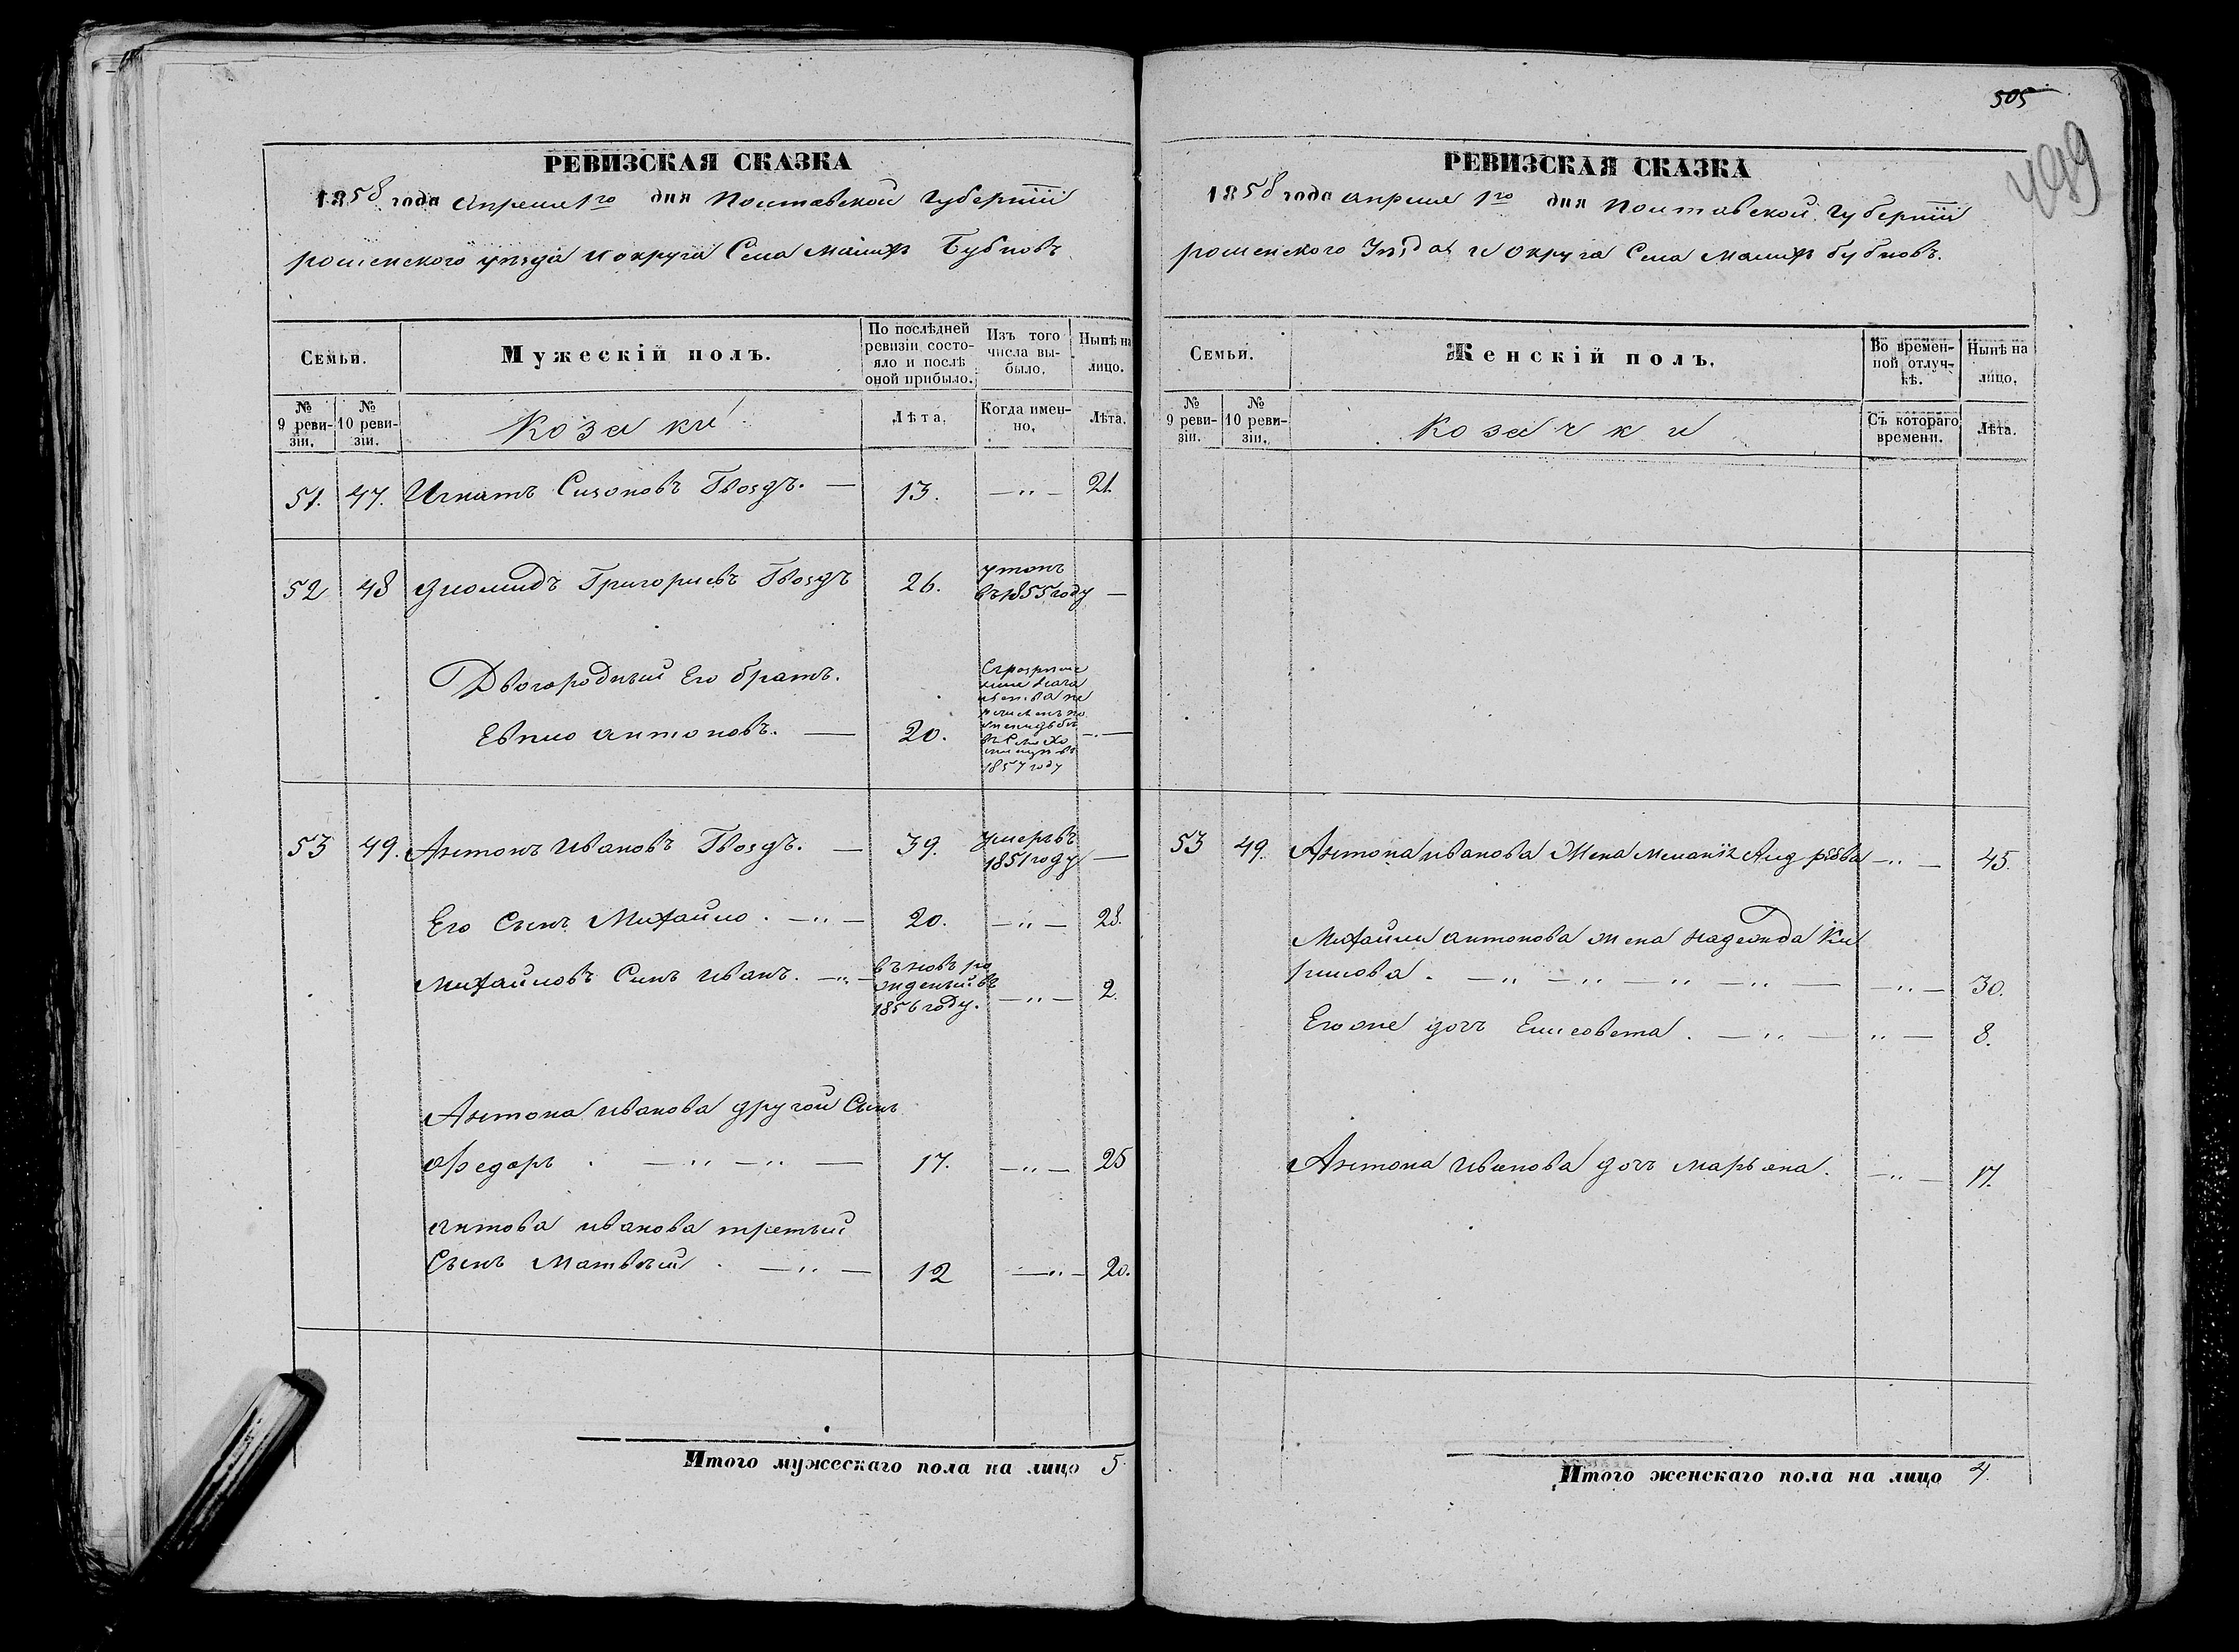 505
499
РЕВИЗСКАЯ СКАЗКА
1858 года Апреля 1го дня Полтавской Губернiи
роменского уѣзда и округа Села Малихъ Бубновъ
Семьи.
Мужескiй полъ.
По послѣдней ревизiи состо-
яло и послѣ
оной прибыло.
Изъ того
числа вы-
было.
Нынѣ на
лицо.
№
9 реви-
зiи.
№
10 реви-
зiи.
Козаки
Лѣта.
Когда имен-
но.
Лѣта.
51. 47. Игнатъ Сизоновъ Гвоздъ. — 13. — „ — 21.
52 48 Дiомидъ Григориевъ Гвоздъ 26. утонъ
въ 1855 году —
Двоюродный Его братъ.
Евтио антоновъ. — 20. 1857 году — „ —
53 49. Антонъ Ивановъ Гвоздъ. — 39. умеръ въ
1851 году —
Его Сынъ Михайло. — „ — 20. — „ — 28.
Михайловъ Синъ Иванъ. — „ — въновь ро
жденый въ
1856 году. — „ — 2.
Антона Иванова другой Сынъ
Федоръ . — „ — „ — 17. — „ — 25
Антова иванова третый
Сынъ Матвѣй . — „ — 12 — „ — 20.
Итого мужескаго пола на лицо 5
РЕВИЗСКАЯ СКАЗКА
1858 года апреля 1го дня Полтавской Губернiи
роменского Уѣзда и Округа Села Малихъ бубновъ.
Семьи.
Женскiй полъ.
Во времен-
ной отлуч-
кѣ.
Нынѣ на
лицо.
№
9 реви-
зiи.
№
10 реви-
зiи.
Козачки
Съ котораго
времени.
Лѣта.
53 49. Антона иванова Жена Меланiя Андрѣева — „ — 45.
Михайли антонова жена надежда Ки
рилова . — „ — „ — „ — „ — — „ — 30.
Егоже дочъ Елисовета . — „ — „ — 8.
Антона Иванова дочъ маръяна. — „ — 17.
Итого женскаго пола на лицо 4.